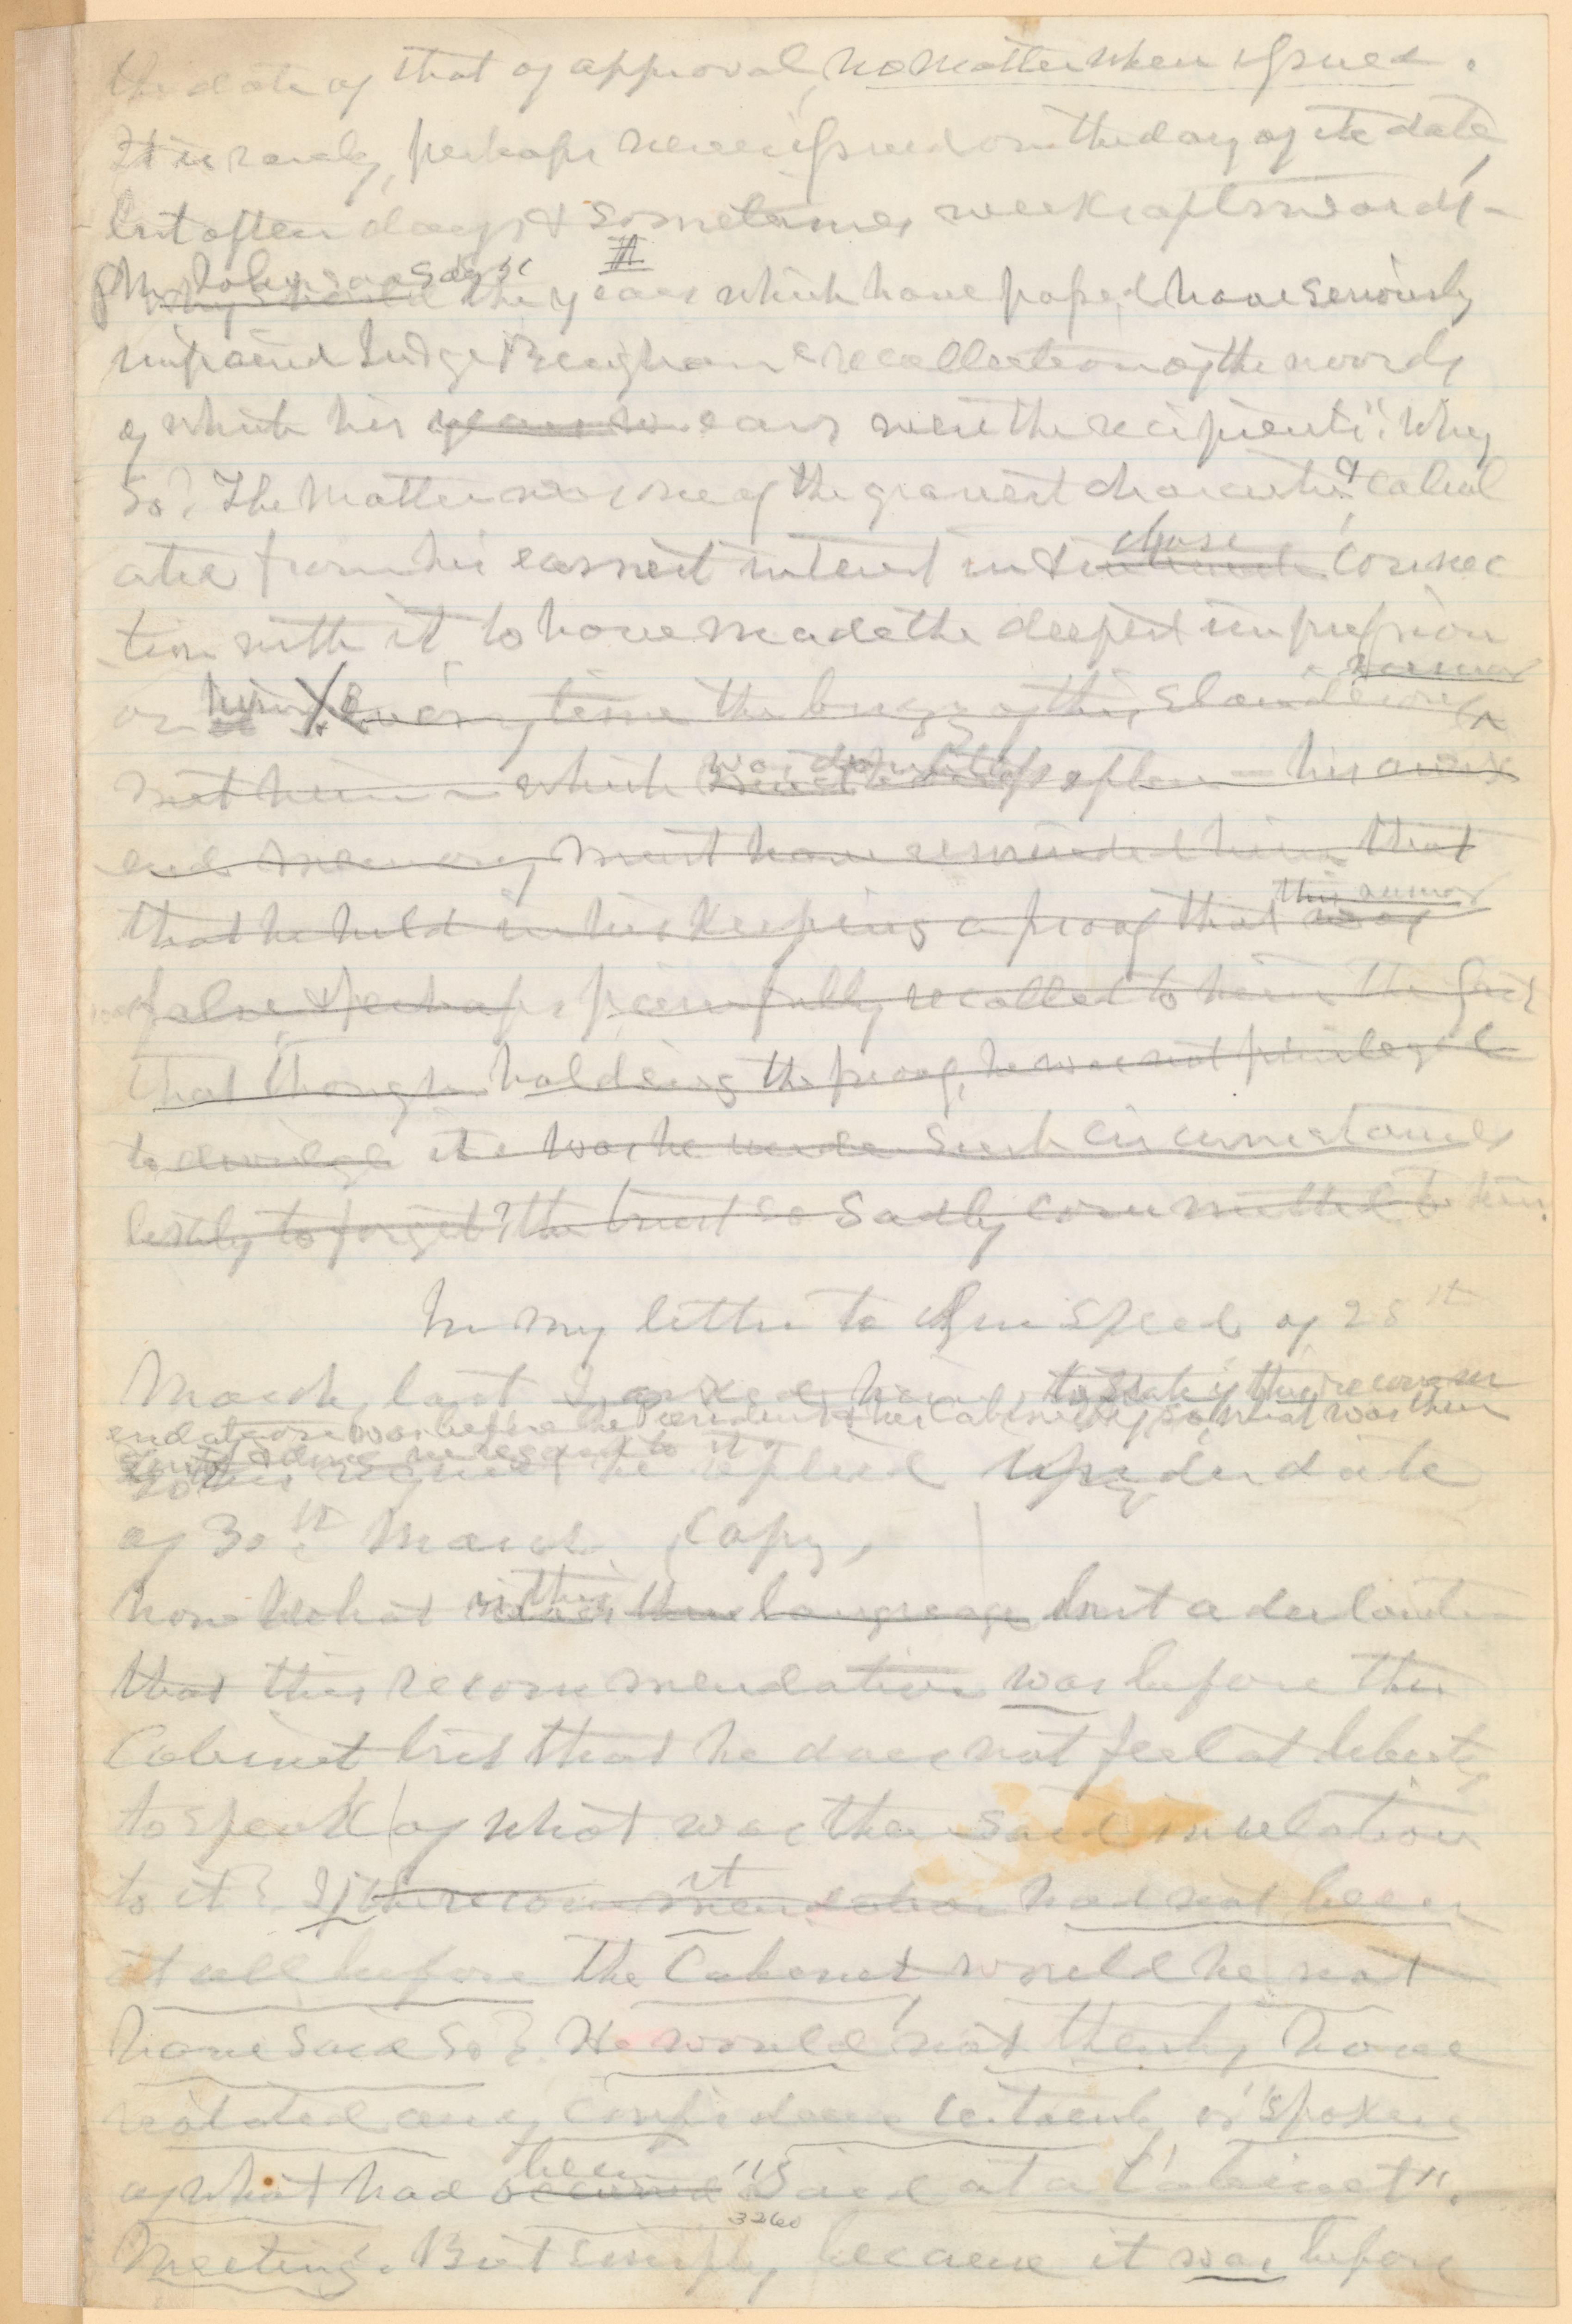 the date of that of approval, no matter when issued.
It is rarely, perhaps never issued on the day of its date,
but often days & sometimes weeks afterwards -
Mr Johnson says "
the years which have passed have seriously
impaired Judge Binghams recollection of the words
of which his years w ears were the recipients". Why
so? The matter was one of the gravest character & calcul
chose
ated from his earnest interest in & connec
tion with it, to have made the deepest impression
rumor
on him X Every time the buzz of this slanderous
was doubtless
met him - which must often - his
and memory must have reminded him that
this rumor
that he held in his keeping a proof that was
false & perhaps painfully recalled to him the fact
that though holding the proof, he was not privileged
to divulge it. Was he under such circumstances
likely to forget? the trust so sadly committed to him.
In my letter to Mr Speed of 25th
March last I asked him to state if this recomm
endation was before the President & his Cabinet & if so, what was then
said & done in regard to it.
To this request he replied under date
of 30th March Copy,
this
Now what is this language but a declaration
that this recommendation was before the
Cabinet but that he does not feel at liberty
to speak of what was then said in relation
it
to it? If the recommendation had not been
at all before the Cabinet would he not
have said so? He would not thereby have
violated any confidence certainly, or "spoken
been
of what had occurred "Said at a Cabinet".
3260
Meeting. But simply because it was before